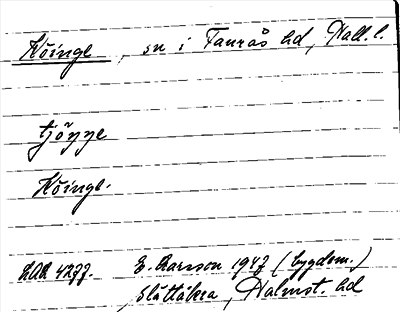 Köinge, sn i Faurås hd, Hall. l.
tjöŋŋe
Köinge.
LAL 4277. E. Larsson 1947 (bygdem.)
Slättåkra, Halmst. hd